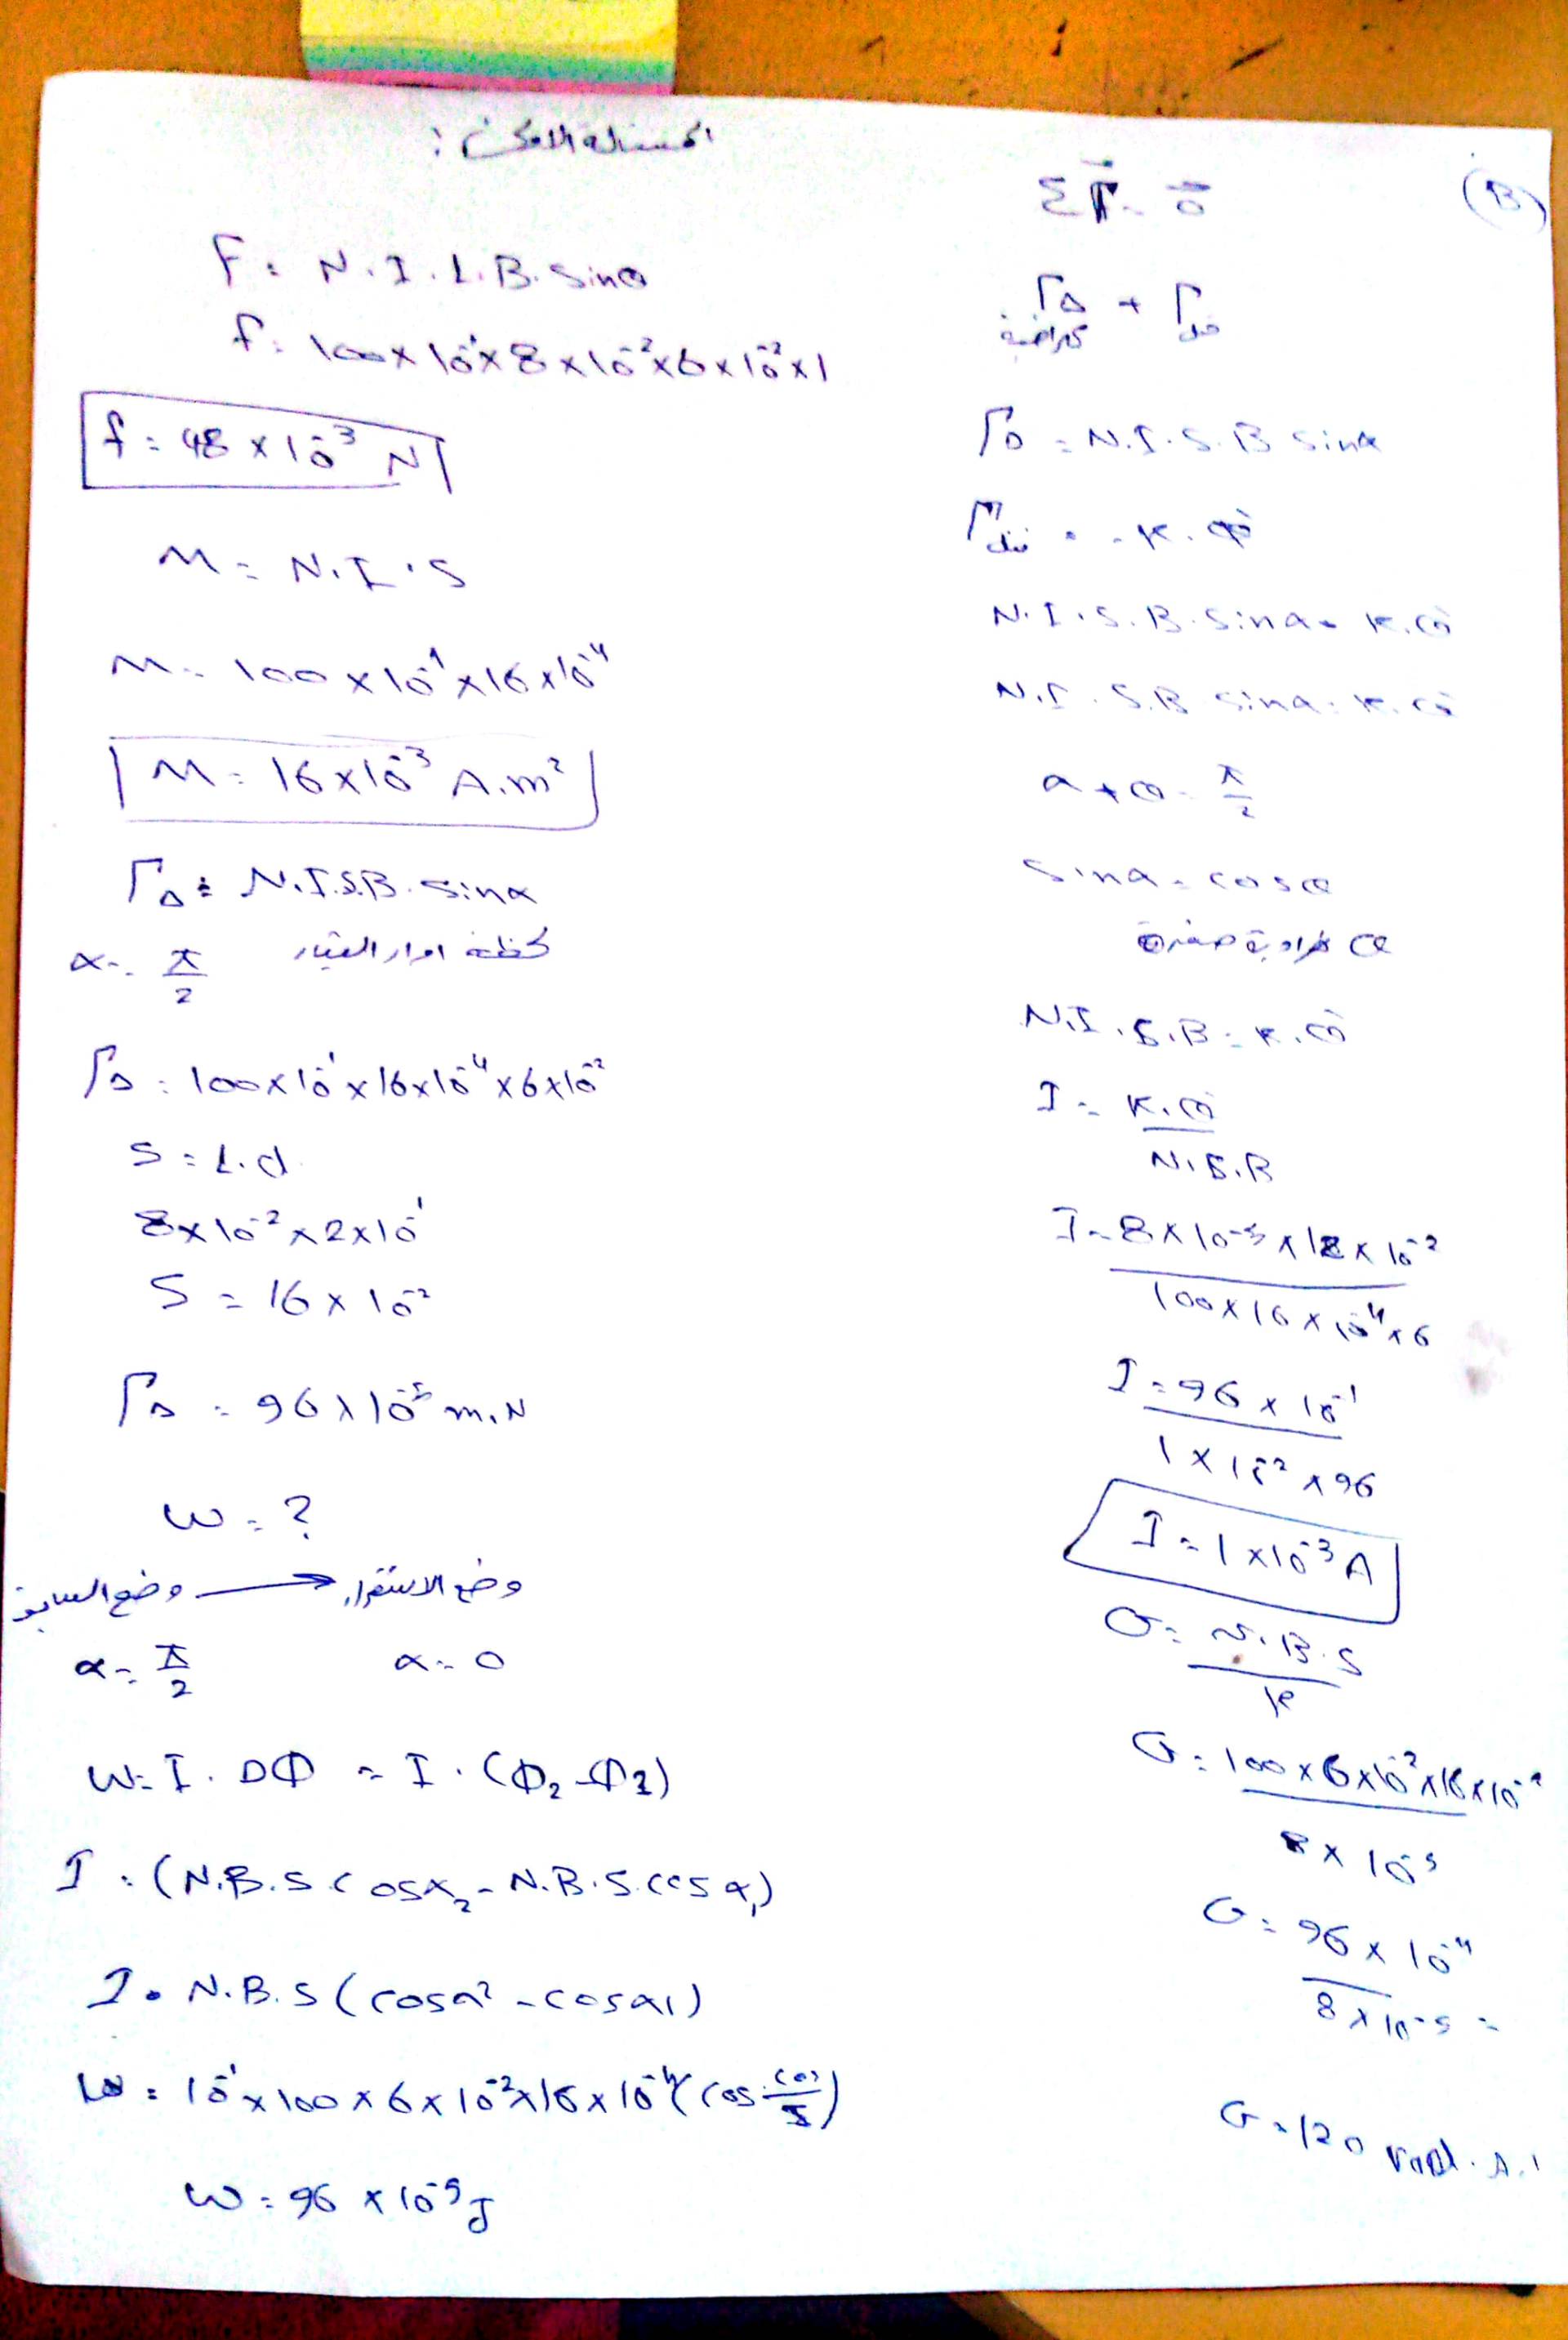 المسألة الاولى :
F = N.I.L.B. sinθ
f = 100 x 10⁻¹ x 8 x 10⁻² x 6 x 10⁻² x 1
f = 48 x 10⁻³ N
M = N.I.S
M = 100 x 10⁻¹ x 16 x 10⁻⁴
M = 16 x 10⁻³ A.m²
ΓΔ = N.I.S.B. sinα
α = π/2 لحظة امرار التيار
ΓΔ = 100 x 10⁻¹ x 16 x 10⁻⁴ x 6 x 10⁻²
S = L.d
8 x 10⁻² x 2 x 10⁻¹
S = 16 x 10⁻²
ΓΔ = 96 x 10⁻⁵ m.N
W = ?
وضع السابق → وضع الاستقرار
α = π/2 α = 0
W = I. ΔΦ = I. (Φ₂ - Φ1)
I. (N.B.S cosα₂ - N.B.S. cosα₁)
I. N.B.S (cosα2 - cosα1)
W = 10⁻¹ x 100 x 6 x 10⁻² x 16 x 10⁻⁴ (cos
W = 96 x 10⁻⁵ J
(B)
Σ Γ = 0
ΓΔ + Γ فتل
كهرطيسية
ΓΔ = N.I.S.B sinα
Γ فتل = - K.θ'
N.I.S.B. sinα = K.θ'
N.I.S.B sinα = K.θ'
α + θ = π/2
sinα = cosθ
θ' زاوية صغيرة
N.I.S.B = K.θ'
I = K.θ' / N.S.B
I = 8 x 10⁻⁵ x 12 x 10⁻² / 100 x 16 x 10⁻⁴ x 6
I = 96 x 10⁻¹ / 1 x 10⁻² x 96
I = 1 x 10⁻³ A
G = N.B.S / K
G = 100 x 6 x 10⁻² x 16 x 10⁻⁴ / 8 x 10⁻⁵
G = 96 x 10⁻⁴ / 8 x 10⁻⁵ =
G = 120 rad. A⁻¹